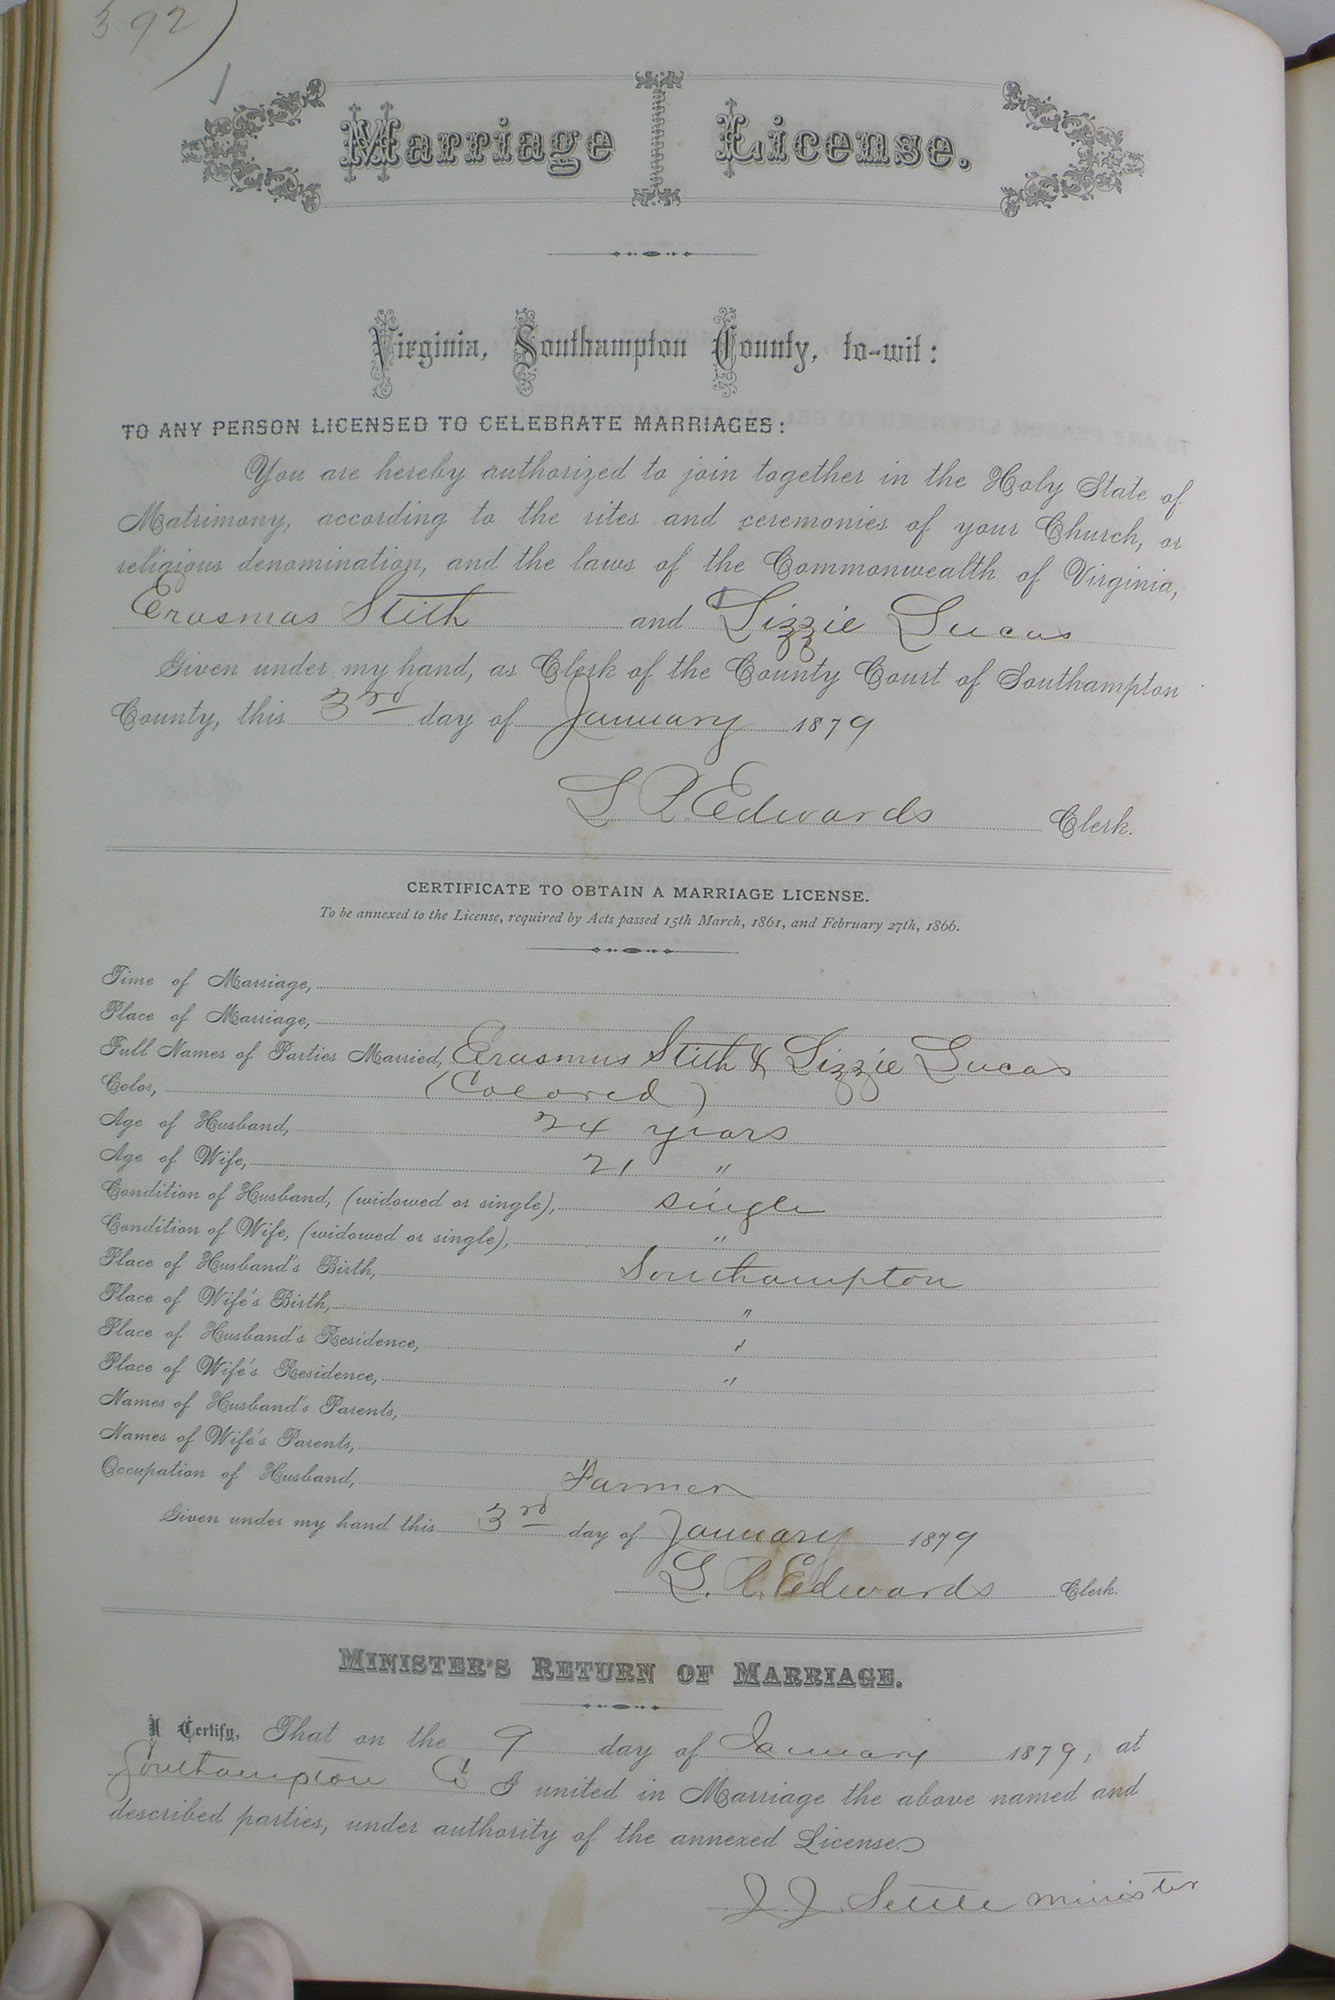 392)
Marriage License.
Virginia, Southampton County, to-wit:
TO ANY PERSON LICENSED TO CELEBRATE MARRIAGES:
You are hereby authorized to join together in the Holy State of
Matrimony, according to the rites and ceremonies of your Church, or
religious denomination, and the laws of the Commonwealth of Virginia,
Erasmas Stith and Lizzie Lucas
Given under my hand, as Clerk of the County Court of Southampton
County, this 3rd day of January 1879
L. R. Edwards Clerk.
CERTIFICATE TO OBTAIN A MARRIAGE LICENSE.
To be annexed to the License, required by Acts passed 15th March, 1861, and February 27th, 1866.
Time of Marriage,
Place of Marriage,
Full Names of Parties Married, Erasmus Stith & Lizzie Lucas
Color, (Colored)
Age of Husband, 24 years
Age of Wife, 21 "
Condition of Husband, (widowed or single), single
Condition of Wife, (widowed or single), "
Place of Husband's Birth, Southampton
Place of Wife's Birth, "
Place of Husband's Residence, "
Place of Wife's Residence, "
Names of Husband's Parents,
Names of Wife's Parents,
Occupation of Husband, Farmer
Given under my hand this 3rd day of January 1879
L. R. Edwards Clerk.
MINISTER'S RETURN OF MARRIAGE.
I Certify, That on the 9 day of January 1879, at
Southampton Co I united in Marriage the above named and
described parties, under authority of the annexed License.
J. J. Settle minister